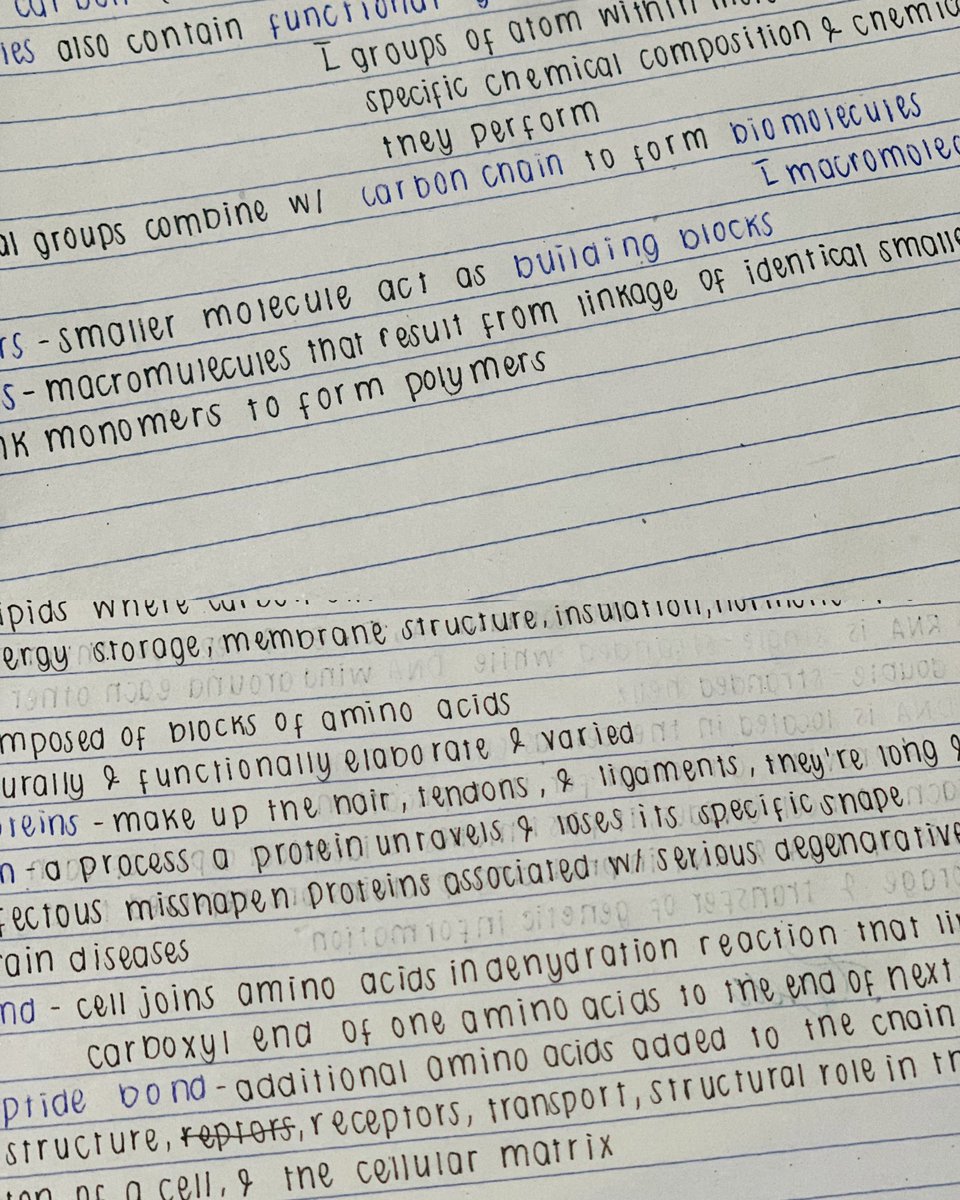 ies also contain functional
I groups of atom within
specific chemical composition & chemic
they perform
al groups combine w/ carbon chain to form biomolecules
I macromolec
rs - smaller molecule act as building blocks
s - macromulecules that result from linkage of identical smalle
nk monomers to form polymers
ipids where
ergy storage, membrane structure, insulation,
mposed of blocks of amino acids
urally & functionally elaborate & varied
oteins - make up the hair, tendons, & ligaments, they're long &
n - a process a protein unravels & loses its specific shape
fectous misshapen proteins associated w/ serious degenarative
rain diseases
nd - cell joins amino acids in dehydration reaction that lin
carboxyl end of one amino acids to the end of next
ptide bond - additional amino acids added to the chain
structure, reptors, receptors, transport, structural role in th
ton of a cell, & the cellular matrix